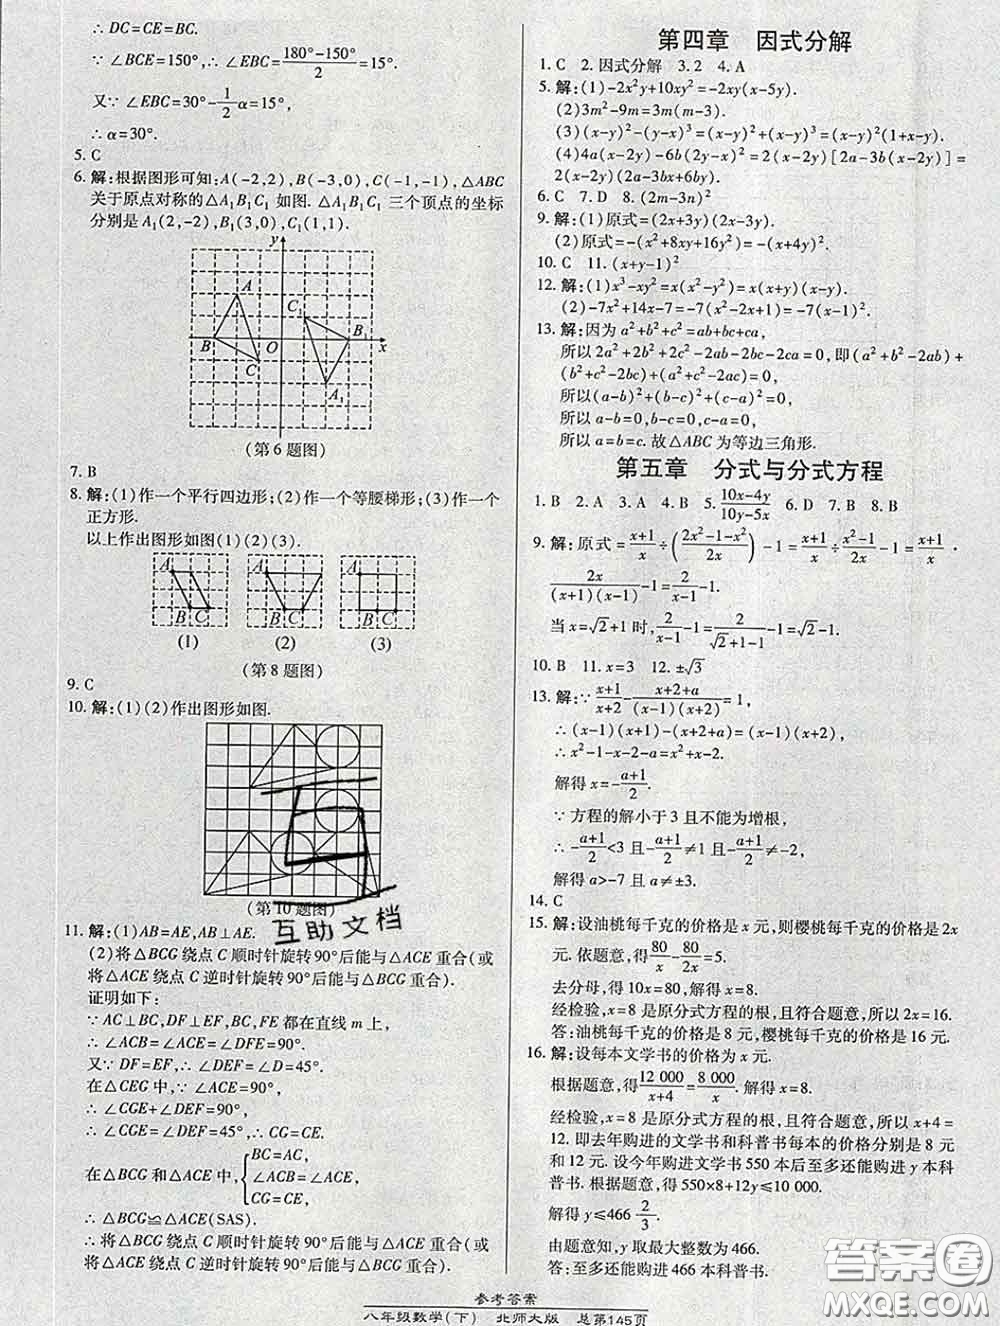 ∴ DC=CE=BC.
∵ ∠BCE=150°,∴ ∠EBC=(180°-150°)/2=15°.
又∵ ∠EBC=30°-1/2α=15°,
∴ α=30°.
5. C
6. 解:根据图形可知:A(-2,2),B(-3,0),C(-1,-1),△ABC
关于原点对称的△A₁B₁C₁ 如图. △A₁B₁C₁ 三个顶点的坐标
分别是 A₁(2,-2),B₁(3,0),C₁(1,1).
y
A
C₁
B
O
B₁
x
C
A₁
(第 6 题图)
7. B
8. 解:(1)作一个平行四边形;(2)作一个等腰梯形;(3)作一个
正方形.
以上作出图形如图(1)(2)(3).
A A A
B C B C B C
(1) (2) (3)
(第 8 题图)
9. C
10. 解:(1)(2)作出图形如图.
(第 10 题图)
互助文档
11. 解:(1)AB=AE,AB⊥AE.
(2)将△BCG 绕点 C 顺时针旋转 90°后能与△ACE 重合(或
将△ACE 绕点 C 逆时针旋转 90°后能与△BCG 重合).
证明如下:
∵ AC⊥BC,DF⊥EF,BC,FE 都在直线 m 上,
∴ ∠ACB=∠ACE=∠DFE=90°.
又∵ DF=EF,∴ ∠DEF=∠D=45°.
在△CEG 中,∵ ∠ACE=90°,
∴ ∠CGE+∠DEF=90°,
∴ ∠CGE=∠DEF=45°,∴ CG=CE.
在△BCG 和△ACE 中,{BC=AC,
∠ACB=∠ACE,
CG=CE,
∴ △BCG≌△ACE(SAS).
∴ 将△BCG 绕点 C 顺时针旋转 90°后能与△ACE 重合(或
将△ACE 绕点 C 逆时针旋转 90°后能与△BCG 重合).
第四章 因式分解
1. C 2. 因式分解 3. 2 4. A
5. 解:(1)-2x²y+10xy=-2xy(x-5y).
(2)3m²-9m=3m(m-3).
(3)(x-y)²-(y-x)³=(x-y)²+(x-y)³=(x-y)²(1+x-y).
(4)4a(x-2y)-6b(2y-x)²=2(x-2y)[2a-3b(x-2y)]=
2(x-2y)(2a-3bx+6by).
6. C 7. D 8. (2m-3n)²
9. 解:(1)原式=(2x+3y)(2x-3y).
(2)原式=-(x²+8xy+16y²)=-(x+4y)².
10. C 11. (x+y-1)²
12. 解:(1)x³-xy²=x(x²-y²)=x(x+y)(x-y).
(2)-7x²+14x-7=-7(x²-2x+1)=-7(x-1)².
13. 解:因为 a²+b²+c²=ab+bc+ca,
所以 2a²+2b²+2c²-2ab-2bc-2ca=0,即(a²+b²-2ab)+
(b²+c²-2bc)+(a²+c²-2ac)=0,
所以(a-b)²+(b-c)²+(c-a)²=0,
所以 a-b=0,b-c=0,c-a=0,
所以 a=b=c. 故△ABC 为等边三角形.
第五章 分式与分式方程
1. B 2. A 3. A 4. B 5. (10x-4y)/(10y-5x) 6. D 7. B 8. B
9. 解:原式=(x+1)/x÷((2x²-1-x²)/2x)-1=(x+1)/x÷(x²-1)/2x-1=(x+1)/x·
2x/((x+1)(x-1))-1=2/(x-1)-1.
当 x=√2+1 时,2/(x-1)-1=2/(√2+1-1)-1=√2-1.
10. B 11. x=3 12. ±√3
13. 解:∵ (x+1)/(x+2)-(x+2+a)/((x-1)(x+2))=1,
∴ (x-1)(x+1)-(x+2+a)=(x-1)(x+2),
∴ x²-1-x-2-a=x²+x-2.
解得 x=-(a+1)/2.
∵ 方程的解小于 3 且不能为增根,
∴ -(a+1)/2<3 且-(a+1)/2≠1 且-(a+1)/2≠-2,
解得 a>-7 且 a≠±3.
14. C
15. 解:设油桃每千克的价格是 x 元,则樱桃每千克的价格是 2x
元. 依题意,得80/x-80/2x=5.
去分母,得 10x=80,解得 x=8.
经检验,x=8 是原分式方程的根,且符合题意,所以 2x=16.
答:油桃每千克的价格是 8 元,樱桃每千克的价格是 16 元.
16. 解:设每本文学书的价格为 x 元.
根据题意,得12 000/(x+4)=8 000/x. 解得 x=8.
经检验,x=8 是原分式方程的根,且符合题意,所以 x+4=
12. 即去年购进的文学书和科普书每本的价格分别是 8 元
和 12 元. 设今年购进文学书 550 本后至多还能购进 y 本科
普书. 根据题意,得 550×8+12y≤10 000.
解得 y≤466 2/3.
由题意知,y 取最大整数为 466.
答:至多还能购进 466 本科普书.
答案圈
MXQE.COM
参考答案
八年级数学(下) 北师大版 总第145页